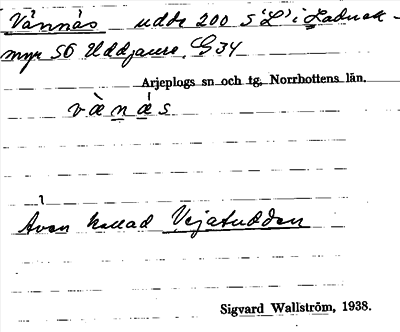 Vännäs udde 200 S "L" i Laduok-
myr SO Uddjaure. G34
Arjeplogs sn och tg, Norrbottens län.
væ̀nǽs
Även kallad Vejatudden
Sigvard Wallström, 1938.